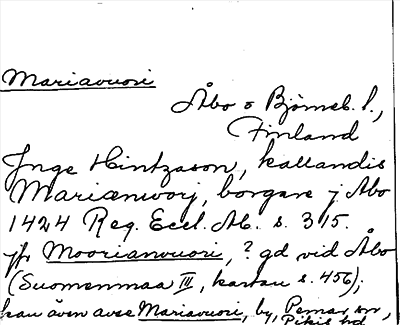 Mariavuori
Åbo o Björneb. l.,
Finland
Inge Hintzason, kallandis
Marianworj, borgare j Åbo
1424 Reg. Eccl. Ab. s. 315.
jfr Moorianvuori, ? gd vid Åbo
(Suomenmaa III, kartan s. 456);
kan även avse Mariavuori, by, Pemar sn,
Pikis hd